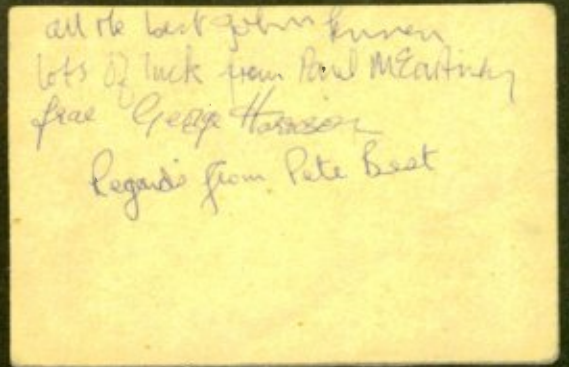 all the best John Lennon
lots of luck from Paul McCartney
from George Harrison
Regards from Pete Best